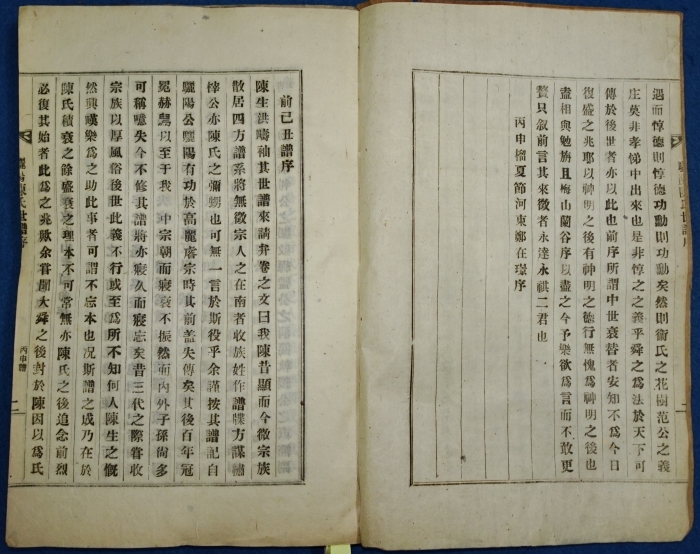 遇而惇德則惇德功勳則功勳矣然則衛氏之花樹范公之義
庄莫非孝悌中出來也是非惇之之義乎舜之爲法於天下可
傳於後世者亦以此也前序所謂中世衰替者安知不爲今日
復盛之兆耶以神明之後有神明之德行無愧爲神明之後也
盡相與勉旃且梅山蘭谷序以盡之今予樂欲爲言而不敢更
贅只叙前言其來徵者永達永祺二君也
丙申榴夏節河東鄭在璟序
前己丑譜序
陳生洪疇袖其世譜來請弁卷之文曰我陳昔顯而今微宗族
散居四方譜系將無徵宗人之在南者收族姓作譜牒方謀繡
梓公亦陳氏之彌甥也可無一言於斯役乎余謹按其譜記自
驪陽公驪陽有功於高麗睿宗時其前盖失傳矣其後百年冠
冕赫舃以至于我 中宗朝而寢衰不振然而內外子孫尙多
可稱噫失今不修其譜將亦寢久而寢忘矣昔三代之際嘗收
宗族以厚風俗後世此義不行或至爲所不知何人陳生之慨
然興嘆樂爲之助此事者可謂不忘本也况斯譜之成乃在於
陳氏積衰之餘盛衰之理本不可常無亦陳氏之後追念前烈
必復其始者此爲之兆歟余嘗聞大舜之後封於陳因以爲氏
陳氏世譜序
丙申譜
二